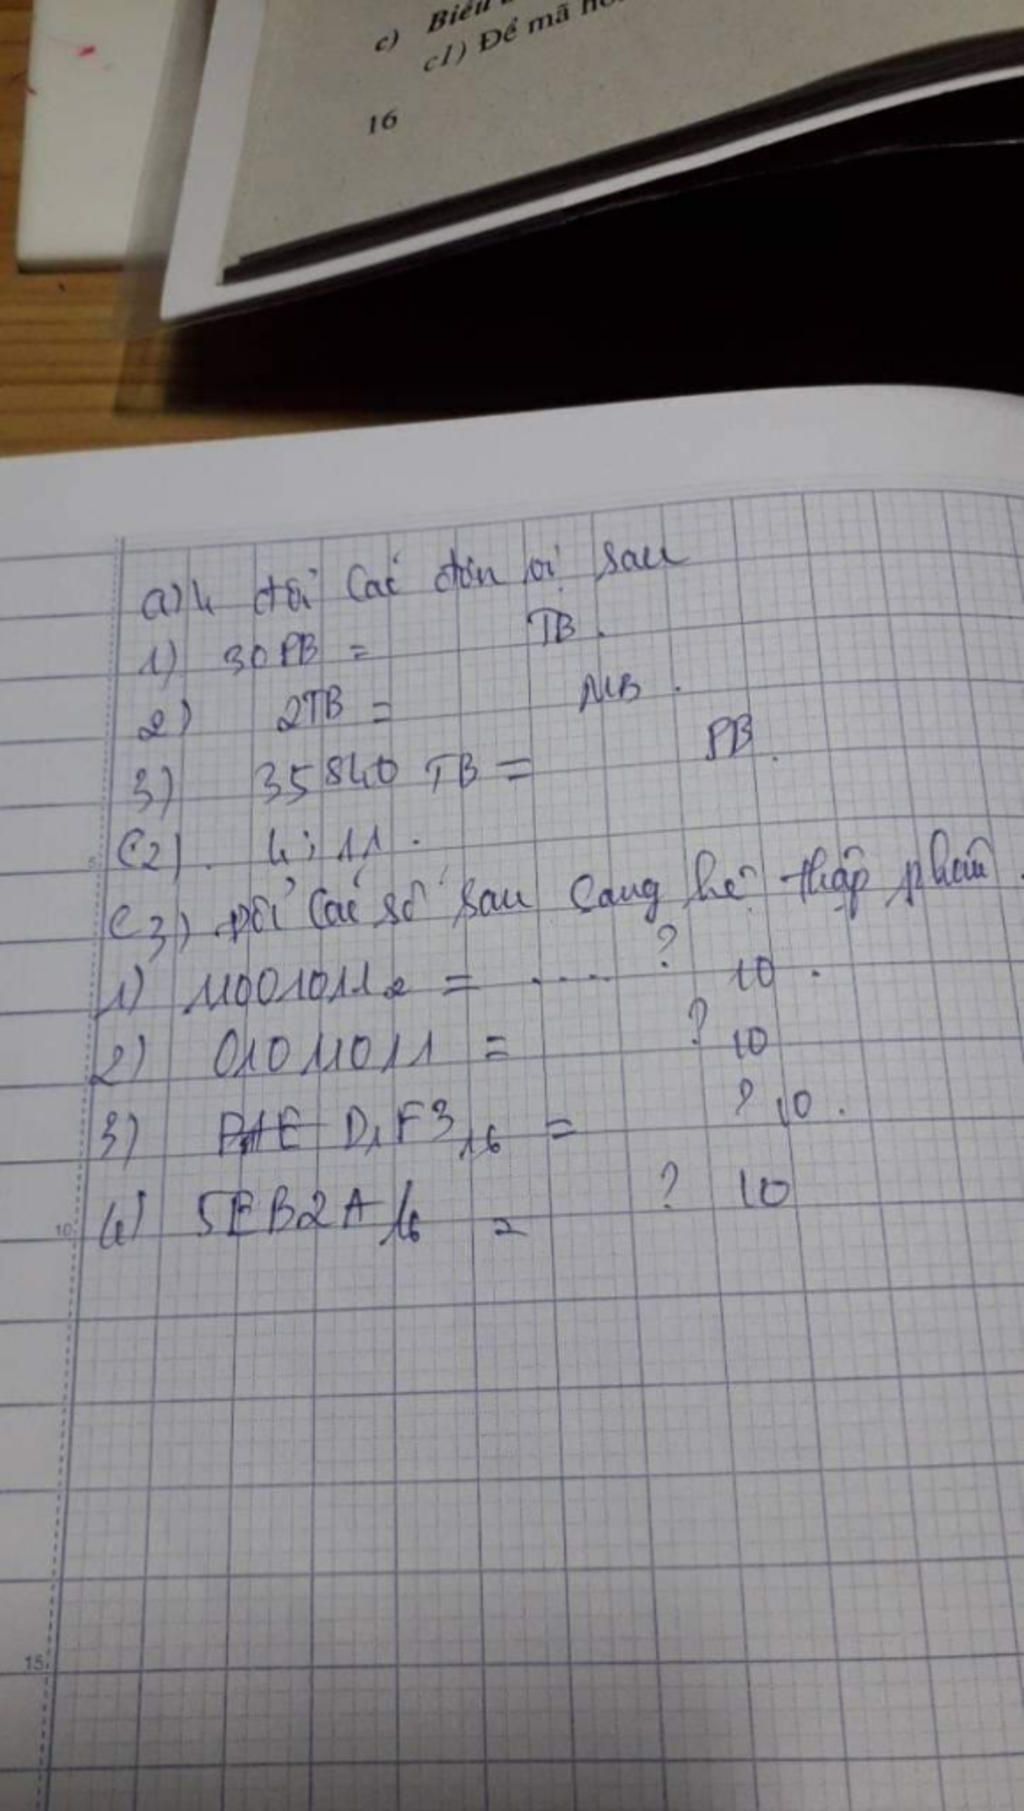 c) Biểu
c1) Để mã
16
a) 4 đổi các đơn vị sau
1) 30 PB = TB.
2) 2TB = MB.
3) 35840 TB = PB.
5
(c2). 4; 11.
(c3) Đổi các số sau sang hệ thập phân.
1) 11001011₂ = .... ? 10.
2) 01011011 = ? 10
3) D1F3₁₆ = ? 10.
10
4) 5EB2A 16 = ? 10
15